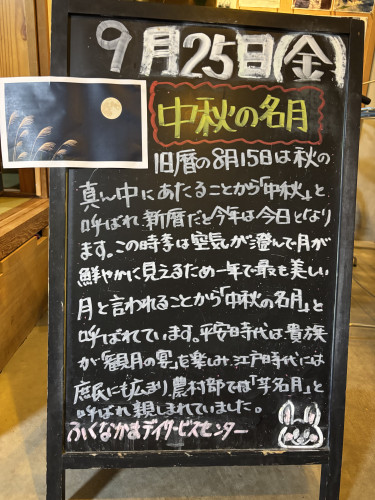 9月25日(金)
中秋の名月
旧暦の8月15日は秋の
真ん中にあたることから「中秋」と
呼ばれ、新暦だと今年は今日となり
ます。この時季は空気が澄んで月が
鮮やかに見えるため一年で最も美しい
月と言われることから「中秋の名月」と
呼ばれています。平安時代は、貴族
が「観月の宴」を楽しみ、江戸時代には
庶民にも広まり、農村部では「芋名月」と
呼ばれ親しまれていました。
ふくなかまデイサービスセンター